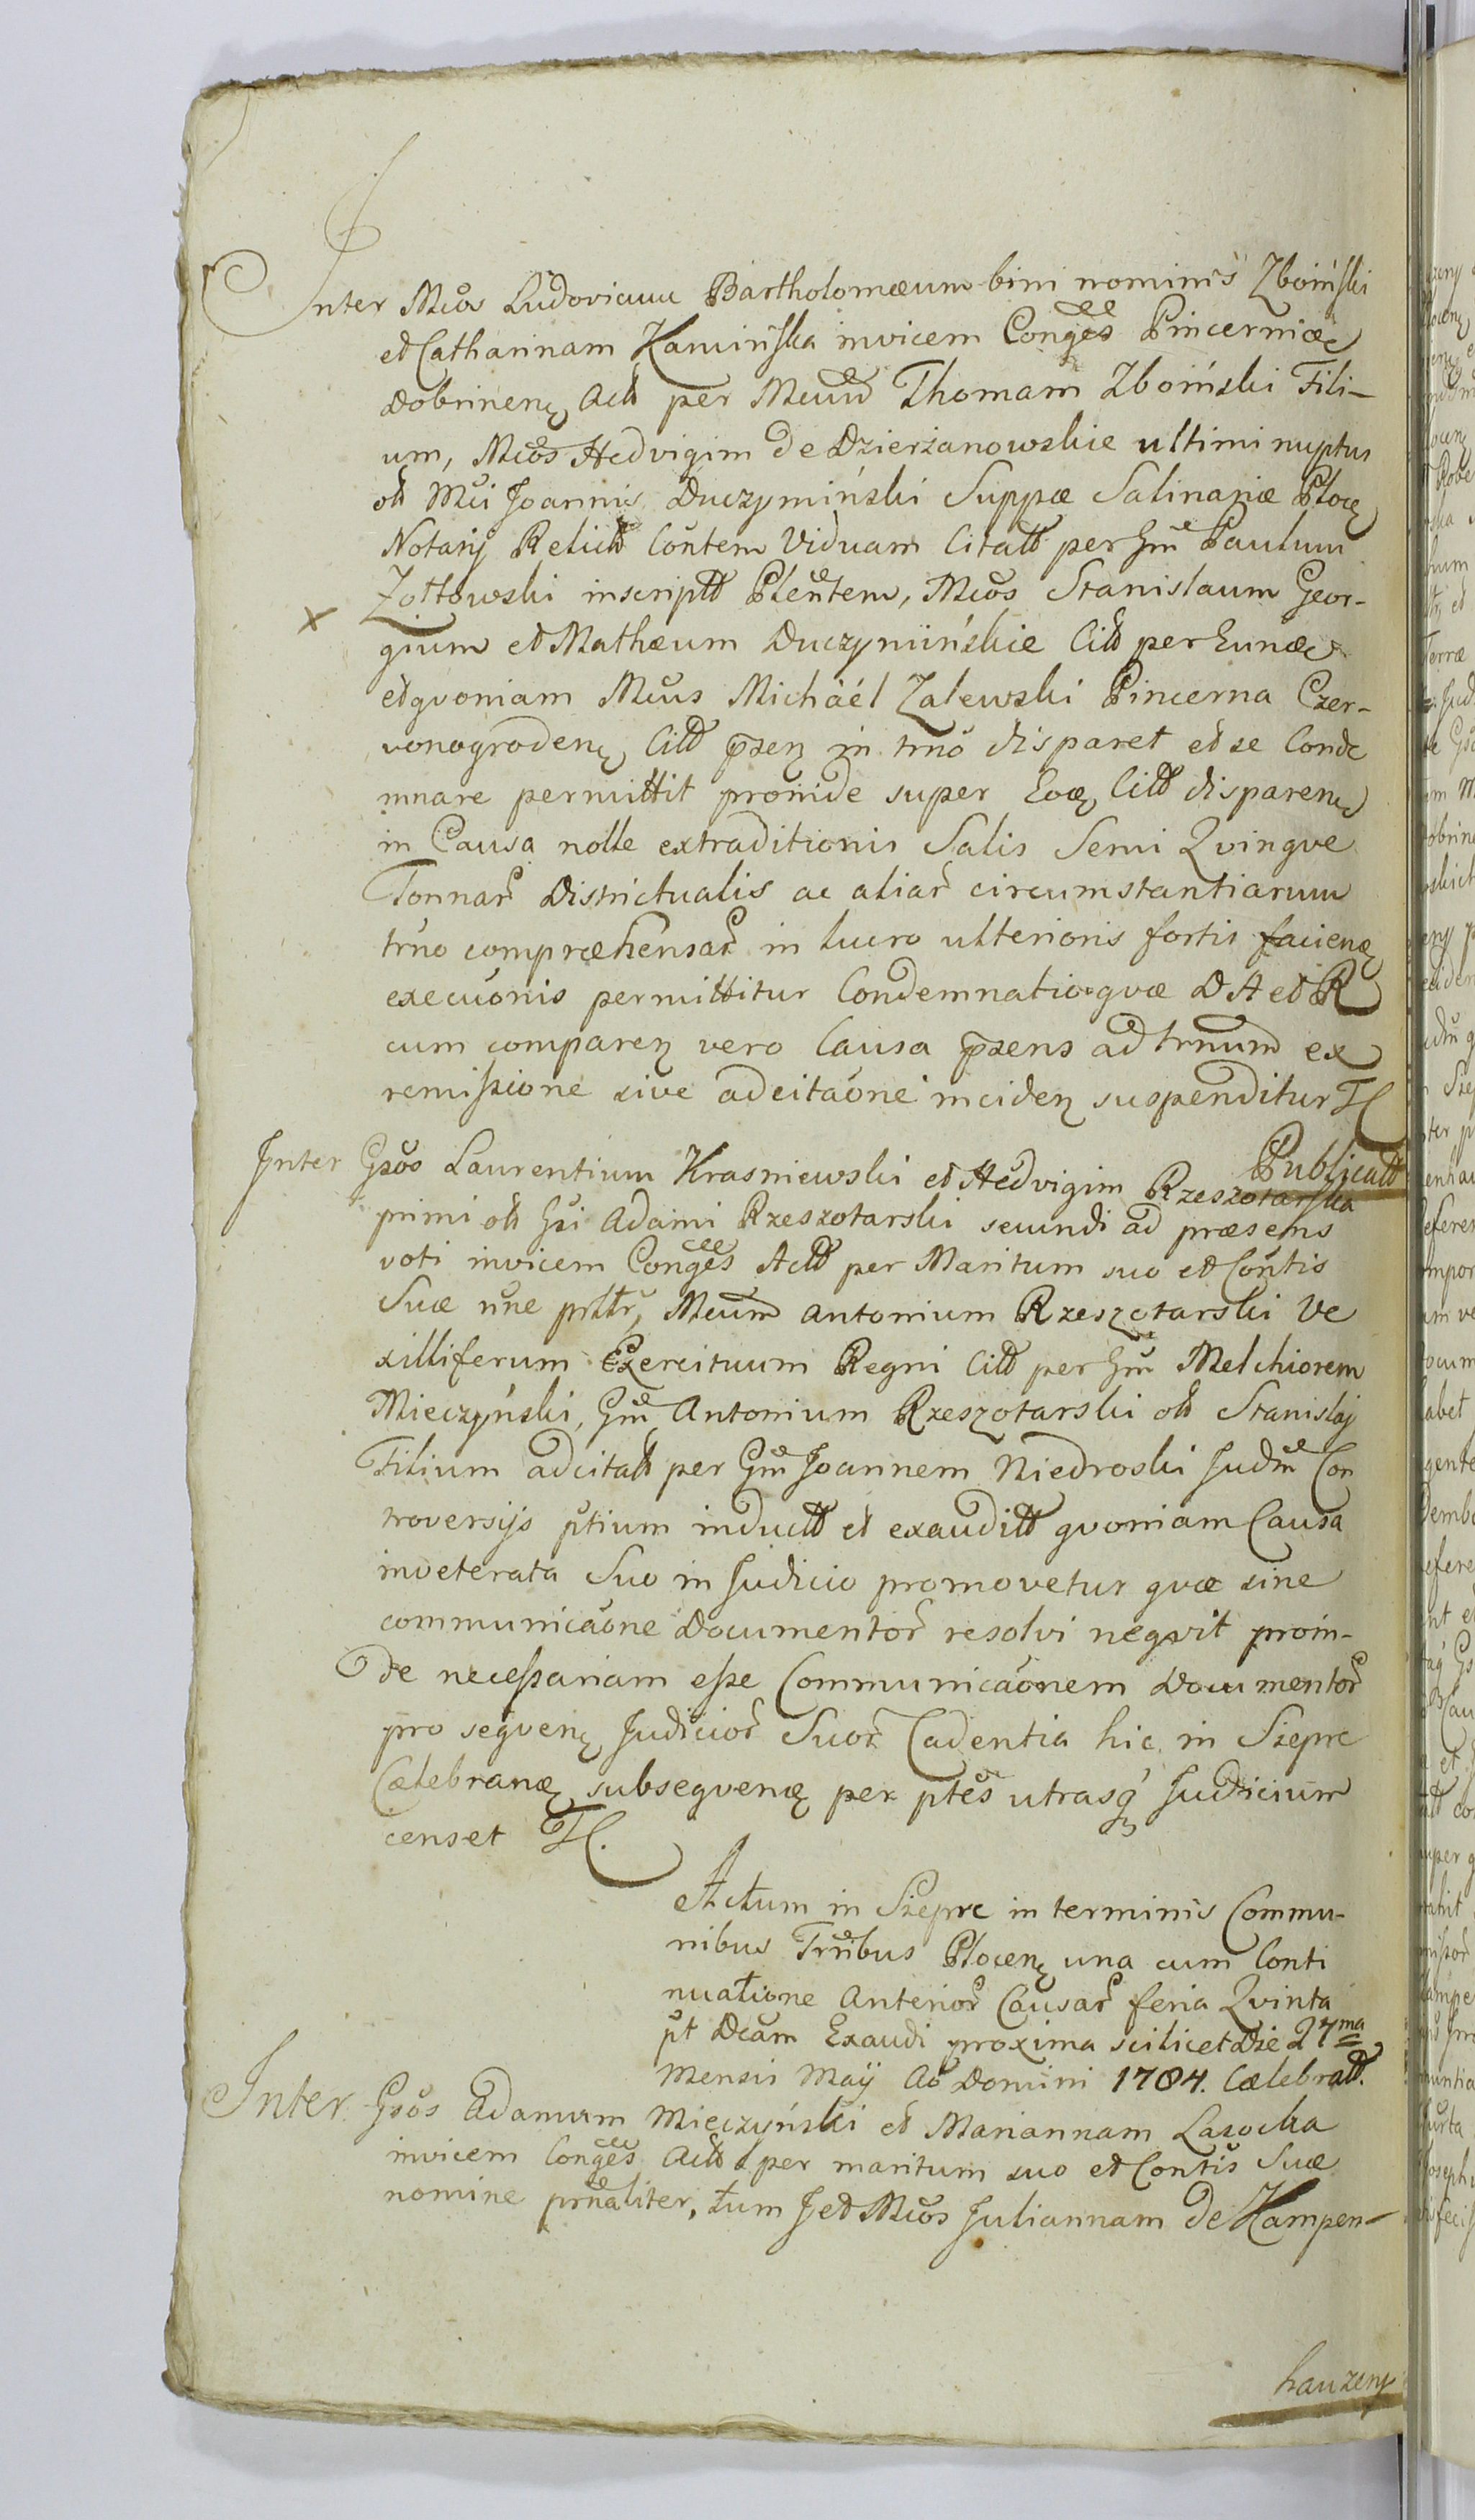 Inter Mcos Ludovicum Bartholomæum bini nominis Zboiński
et Catharinam Kamińska invicem Conges Pincerniæ
Dobrinens Act per Mcum Thomam Zboiński Fili-
um, Mcos Hedvigim de Dzierżanowskie ultimi nuptus
olt Mci Joannis Duczymiński Suppæ Salinariæ Ploc
Notarij Relict Contem Viduam Citatt per Gm Paulum
Żołtowski inscriptt Plentem, Mcos Stanislaum Geor-
x gium et Mathæum Duczymińskie Citt per Eundem
et qvoniam Mcus Michäél Zalewski Pincerna Czer-
vonogrodens Citt præsen in trno disparet et se Conde
mnare permittit proinde super Eod Citt disparen
in Causa nolle extraditionis Salis Semi Qvinqve
Tonnar Districtualis ac aliar circumstantiarum
trno compræhensar in lucro ulterioris fortis faciens
execuonis permittitur Condemnatio qvæ D A et R
cum comparen vero Causa præsens ad trnum ex
remissione sive adcitaone inciden suspenditur H
Publicatt
Inter Gsos Laurentium Krasniewski et Hedvigim Rzeszotarska
primi olt Gsi Adami Rzeszotarski secundi ad præsens
voti invicem Conges Actt per Maritum suo et Contis
Suæ nne prlltr, Mcum Antonium Rzeszotarski Ve
xilliferum Exercituum Regni Citt per Gm Melchiorem
Mieczyński, Gm Antonium Rzeszotarski olt Stanislaj
Filium adcitatt per Gm Joannem Niedroski Judm Con
troversijs ptium inductt et exauditt qvoniam Causa
inveterata Suo in Judicio promovetur qvæ sine
communicaone Documentor resolvi neqvit proin-
de necessariam esse Communicaonem Documentor
pro seqvens Judicior Suor Cadentia hic in Sierpc
Cælebranæ subseqvenæ per ptes utrasq Judicium
censet H.
Actum in Sierpc in terminis Commu-
nibus Trnibus Plocens una cum Conti
nuatione Anterior Causar feria Qvinta
pt Dcam Exaudi proxima scilicet Die 27ma
Mensis Maij Ao Domini 1784. Cælebratt.
Inter Gsos Adamum Mieczyński et Mariannam Lasocka
invicem Conges Actt per maritum suo et Contis Suæ
nomine prnaliter, tum J et Mcos Juliannam de Kampen-
hauzeny